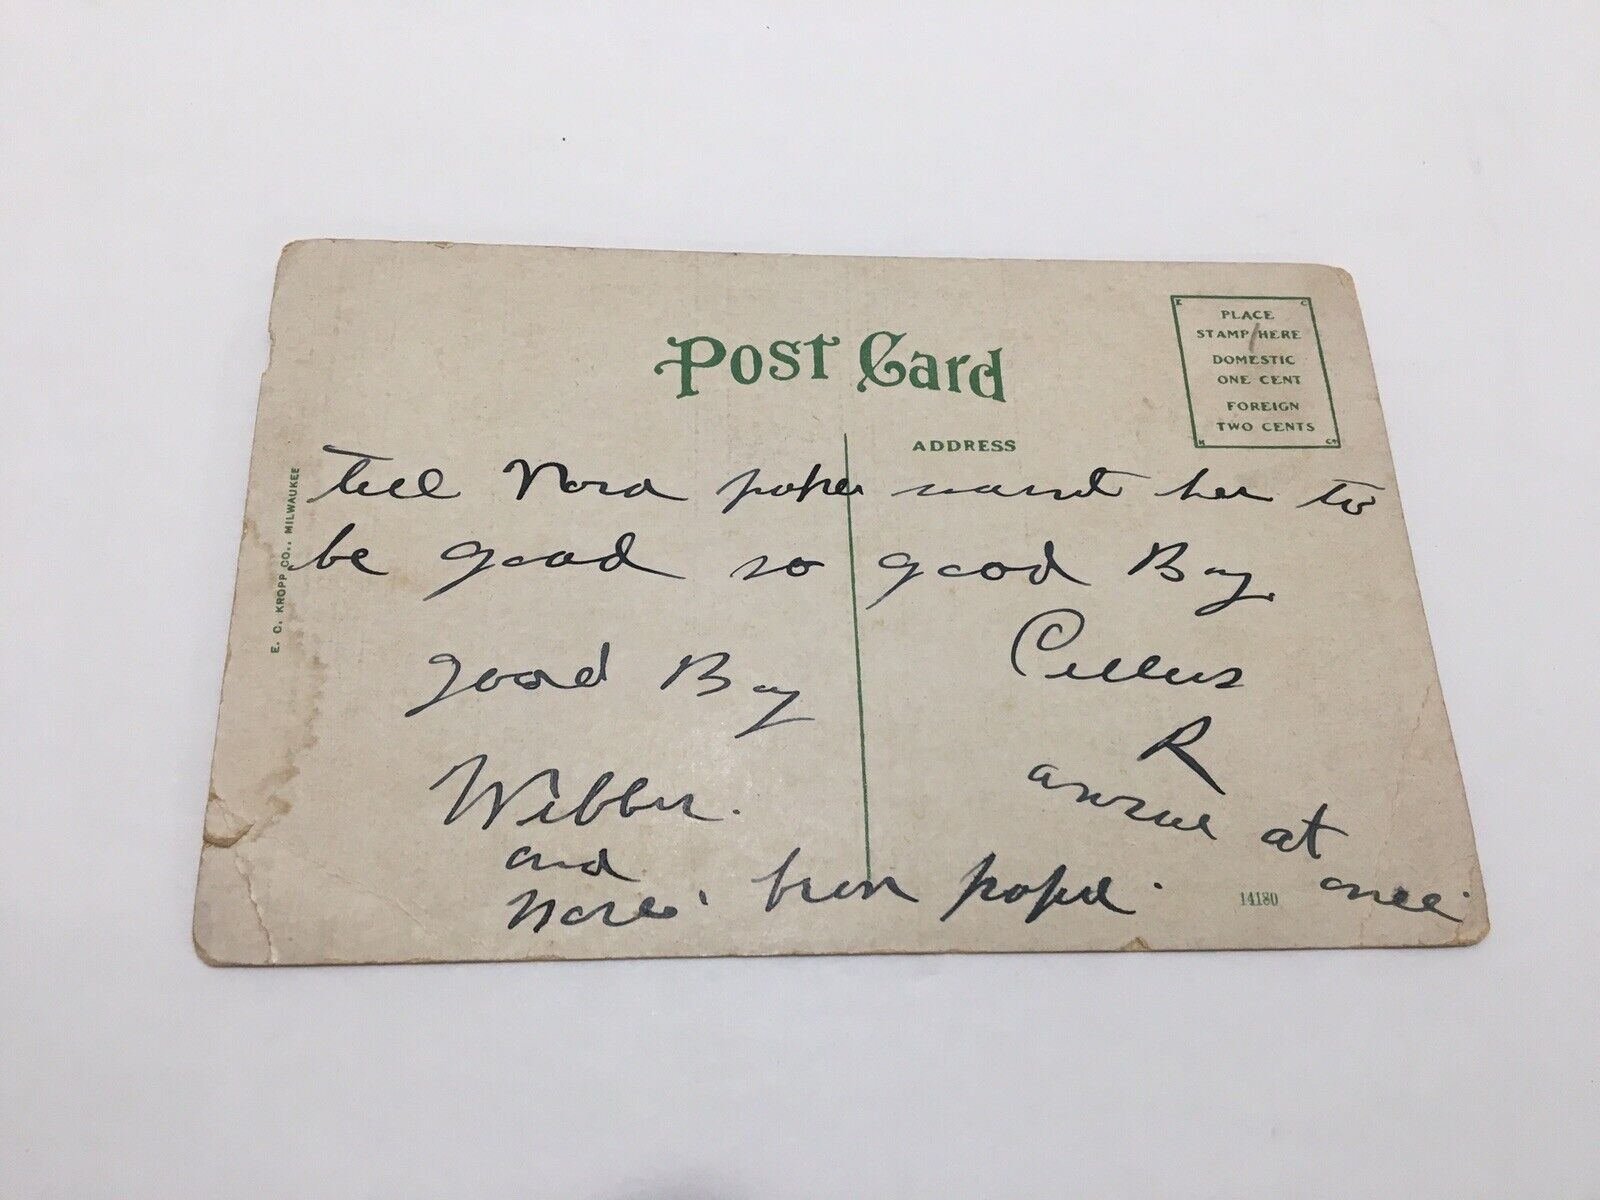 Post Card
PLACE
STAMP HERE
DOMESTIC
ONE CENT
FOREIGN
TWO CENTS
E C
K Co
ADDRESS
E. C. KROPP CO., MILWAUKEE
tell Nora want her to
be good so good By
good By
Webber.
and
from
R
at
once
14180